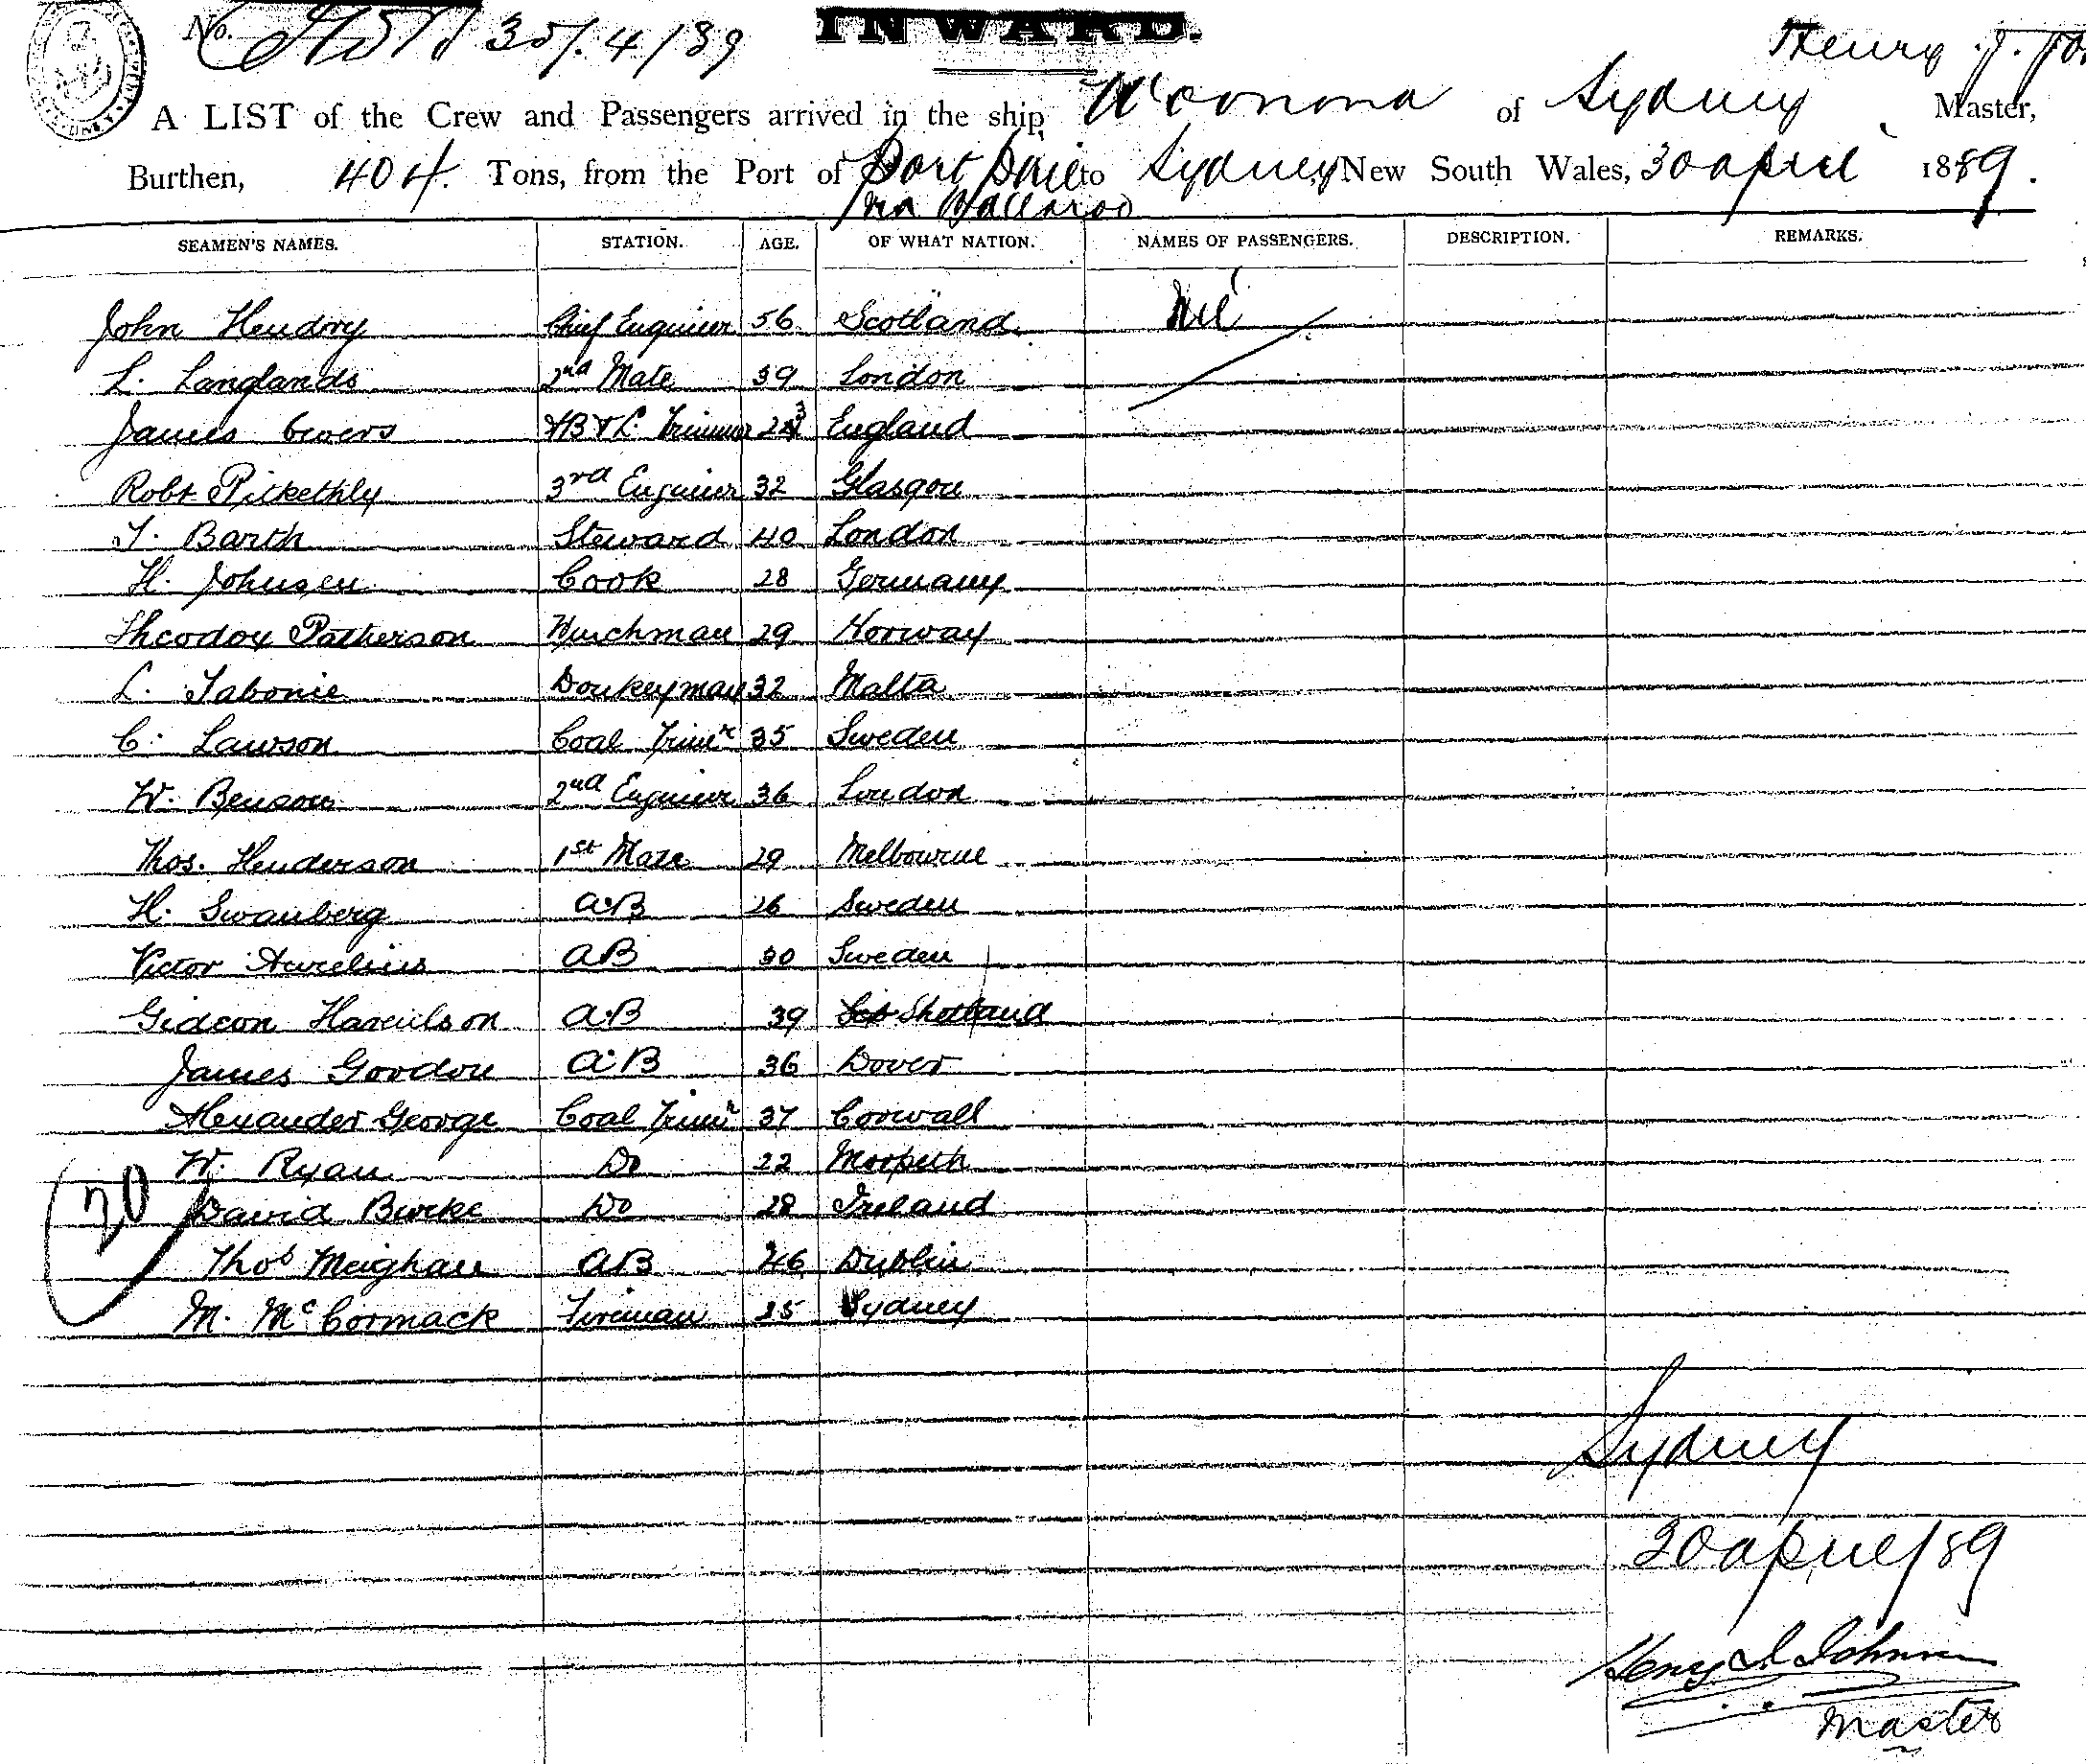 No. 30/4/89
INWARD.
Henry J.
A LIST of the Crew and Passengers arrived in the ship Woonona of Sydney Master,
Burthen, 404 Tons, from the Port of Port Pirie to Sydney, New South Wales, 30 april 1889.
via Wallaroo
SEAMEN'S NAMES. STATION. AGE. OF WHAT NATION. NAMES OF PASSENGERS. DESCRIPTION. REMARKS.
John Hendry Chief Engineer 56 Scotland Nil
L. Langlands 2nd Mate 39 London
James Trimmer 3 England
Robt Pickethly 3rd Engineer 32 Glasgow
T. Barth Steward 40 London
H. Johnsen Cook 28 Germany
Theodor Patherson Winchman 29 Norway
L. Tabonie Donkeyman 32 Malta
C. Lawson Coal Trimr 35 Sweden
W. Benson 2nd Engineer 36 London
Thos. Henderson 1st Mate 29 Melbourne
H. Swanberg A.B 26 Sweden
Victor Aurelius AB 30 Sweden
Gideon Harculson A.B 39 Shetland
James Gordon A.B 36 Dover
Alexander George Coal Trimr 37 Corwall
W. Ryan Do 22 Morpeth
20 David Burke Do 28 Ireland
Thos Meighan AB 46 Dublin
M. McCormack Fireman 25 Sydney
Sydney
30 april/89
Henry J. Johnson
Master